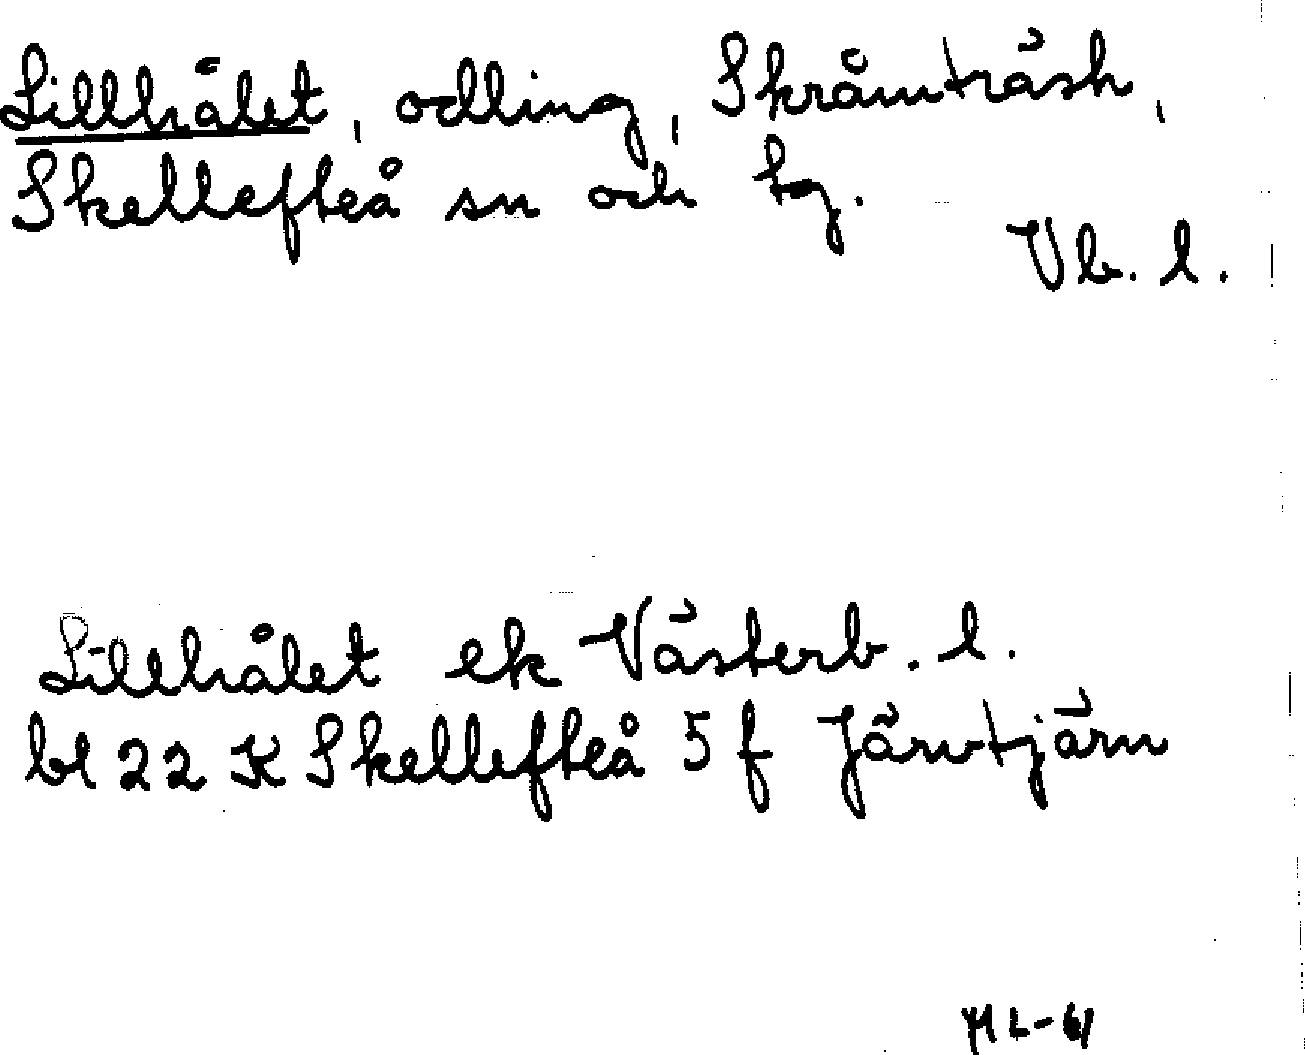 Lillhålet, odling, Skråmträsk,
Skellefteå sn och tg.
Vb. l.
Lillhålet ek Västerb. l.
bl 22 K Skellefteå 5 f Järvtjärn
ML-61